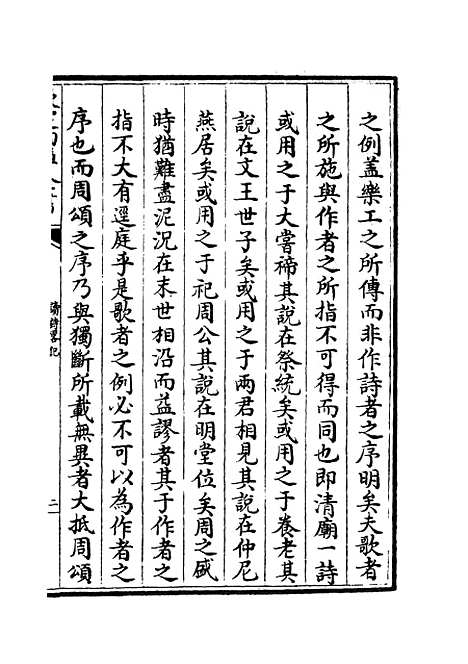 之例蓋樂工之所傳而非作詩者之序明矣夫歌者
之所施與作者之所指不可得而同也即清廟一詩
或用之于大嘗禘其說在祭統矣或用之于養老其
說在文王世子矣或用之于兩君相見其說在仲尼
燕居矣或用之于祀周公其說在明堂位矣周之盛
時猶難盡泥況在末世相沿而益謬者其于作者之
指不大有逕庭乎是歌者之例必不可以為作者之
序也而周頌之序乃與獨斷所載無異者大抵周頌
讀詩畧記
二